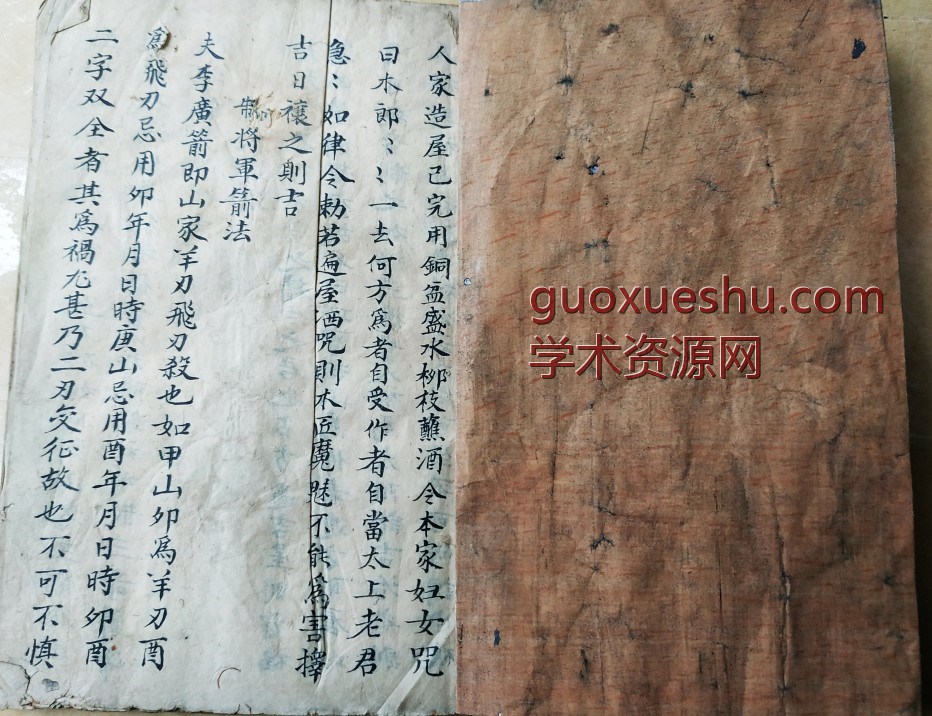 人家造屋已完用銅盆盛水柳枝蘸酒令本家妇女咒
曰木郎〻〻一去何方為者自受作者自當太上老君
急〻如律令勅若遍屋洒咒則木匠魔魅不能為害擇
吉日禳之則吉
將軍箭法
夫李廣箭即山家羊刃飛刃殺也如甲山卯為羊刃酉
為飛刃忌用卯年月日時庚山忌用酉年月日時卯酉
二字双全者其為禍尤甚乃二刃交征故也不可不慎
guoxueshu.com
学术资源网